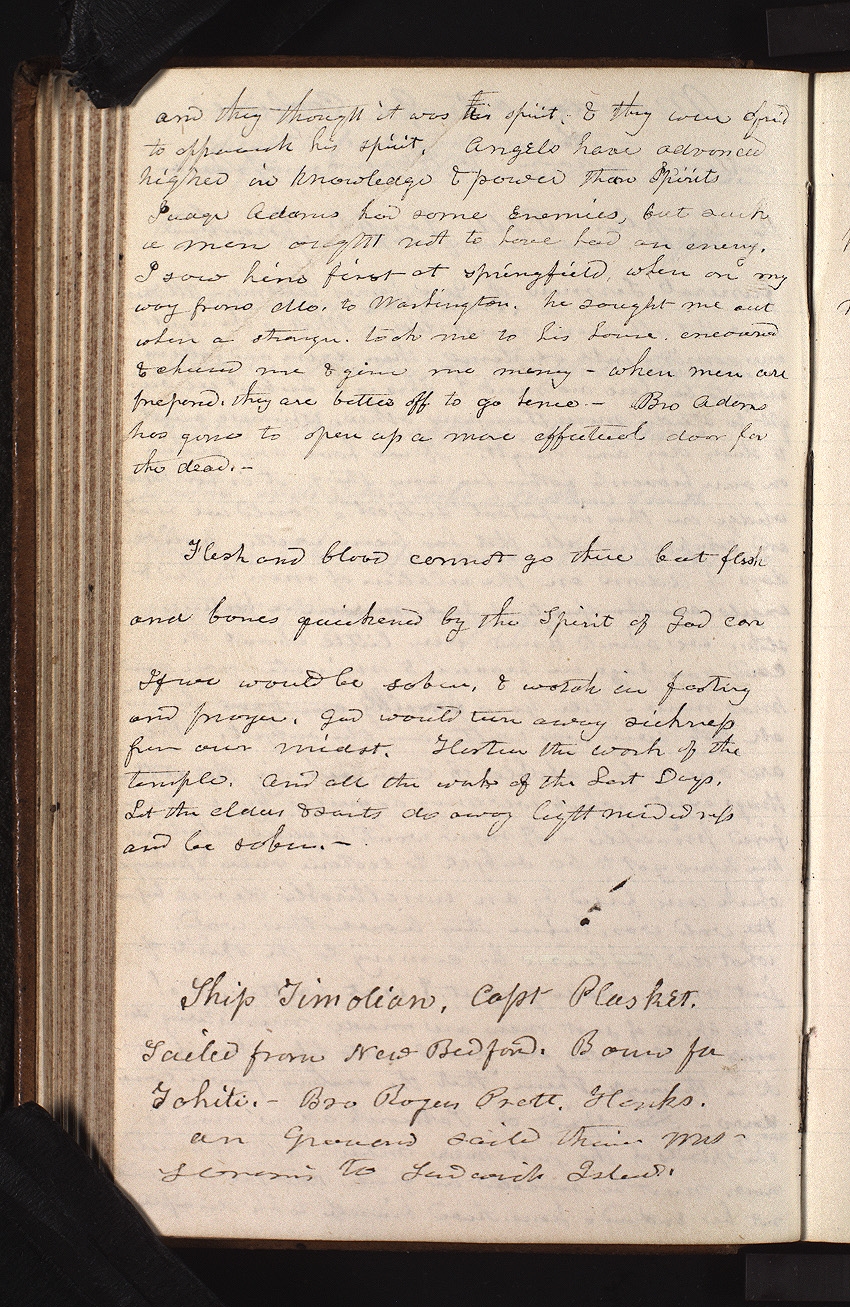 and they thought it was his spirit. & they were afrid
to approach his spirit. Angels have advanced
higher in knowledge & power than Spirits
Judge Adams had some Enemies, but such
a man ought not to have had an enemy.
I saw him first at springfield. when on my
way from Mo. to Washington. he sought me out
when a stranger. took me to his home. encouraged
& cheered me & give me money - when men are
prepared. they are better off to go hence. - Bro Adams
has gone to open up a more effectual door for
the dead. -
Flesh and blood cannot go there but flesh
and bones quickened by the Spirit of God can
If we would be sober, & watch in fasting
and prayer. God would turn away sickness
from our midst. Hasten the work of the
temple. and all the work of the Last Days.
Let the elders & saits do away lightmindedness
and be sober. -
Ship Timolian, Capt Plasket.
Sailed from New Bedford. Boun for
Tahiti. - Bro Rogers Pratt. Hanks.
an Grouard saild their
to Sandwich Island.